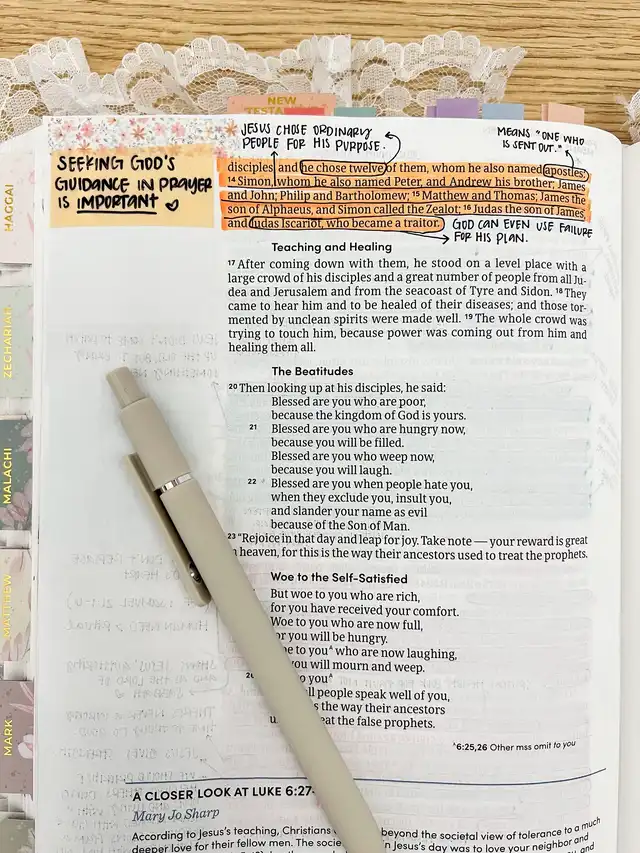 NEW
TESTA
JESUS CHOSE ORDINARY
PEOPLE FOR HIS PURPOSE.
MEANS "ONE WHO
IS SENT OUT."
SEEKING GOD'S
GUIDANCE IN PRAYER
IS IMPORTANT
disciples, and he chose twelve of them, whom he also named apostles:
14 Simon, whom he also named Peter, and Andrew his brother; James
and John; Philip and Bartholomew; 15 Matthew and Thomas; James the
son of Alphaeus, and Simon called the Zealot; 16 Judas the son of James,
and Judas Iscariot, who became a traitor.
GOD CAN EVEN USE FAILURE
FOR HIS PLAN.
Teaching and Healing
17 After coming down with them, he stood on a level place with a
large crowd of his disciples and a great number of people from all Ju-
dea and Jerusalem and from the seacoast of Tyre and Sidon. 18 They
came to hear him and to be healed of their diseases; and those tor-
mented by unclean spirits were made well. 19 The whole crowd was
trying to touch him, because power was coming out from him and
healing them all.
The Beatitudes
20 Then looking up at his disciples, he said:
Blessed are you who are poor,
because the kingdom of God is yours.
21 Blessed are you who are hungry now,
because you will be filled.
Blessed are you who weep now,
because you will laugh.
22 Blessed are you when people hate you,
when they exclude you, insult you,
and slander your name as evil
because of the Son of Man.
23 "Rejoice in that day and leap for joy. Take note — your reward is great
heaven, for this is the way their ancestors used to treat the prophets.
Woe to the Self-Satisfied
But woe to you who are rich,
for you have received your comfort.
Woe to you who are now full,
you will be hungry.
to you^A who are now laughing,
you will mourn and weep.
to you^A
people speak well of you,
is the way their ancestors
the false prophets.
^A 6:25,26 Other mss omit to you
A CLOSER LOOK AT LUKE 6:27-
Mary Jo Sharp
According to Jesus's teaching, Christians beyond the societal view of tolerance to a much
deeper love for their fellow men. The in Jesus's day was to love your neighbor and
HAGGAI
ZECHARIAH
MALACHI
MATTHEW
MARK